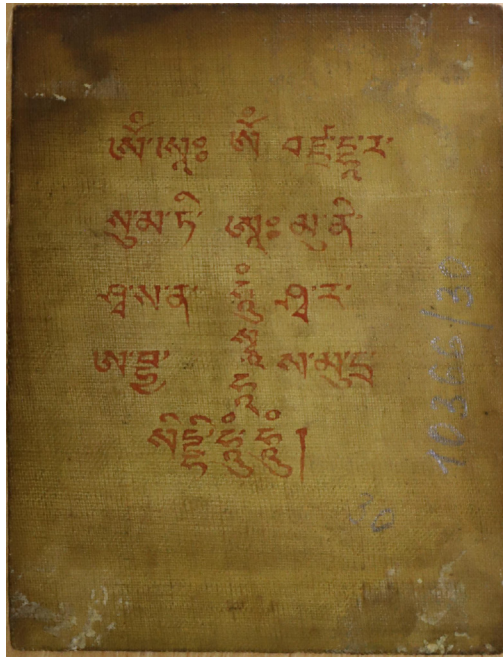 ཨོཾ་ཨཱཿ ཨོཾ བཛྲ་དྷཱ་ར་
སུ་མ་ཏི་ ཨཱཿ མུ་ནི་
ཤཱ་ས་ན་ ཧཱུྃ ར་
ཨ་ སྭཱ ཧཱ ས་མུ་དྲ
སིདྡྷི་ཧཱུྃ་ཧཱུྃ།
10366/30
30